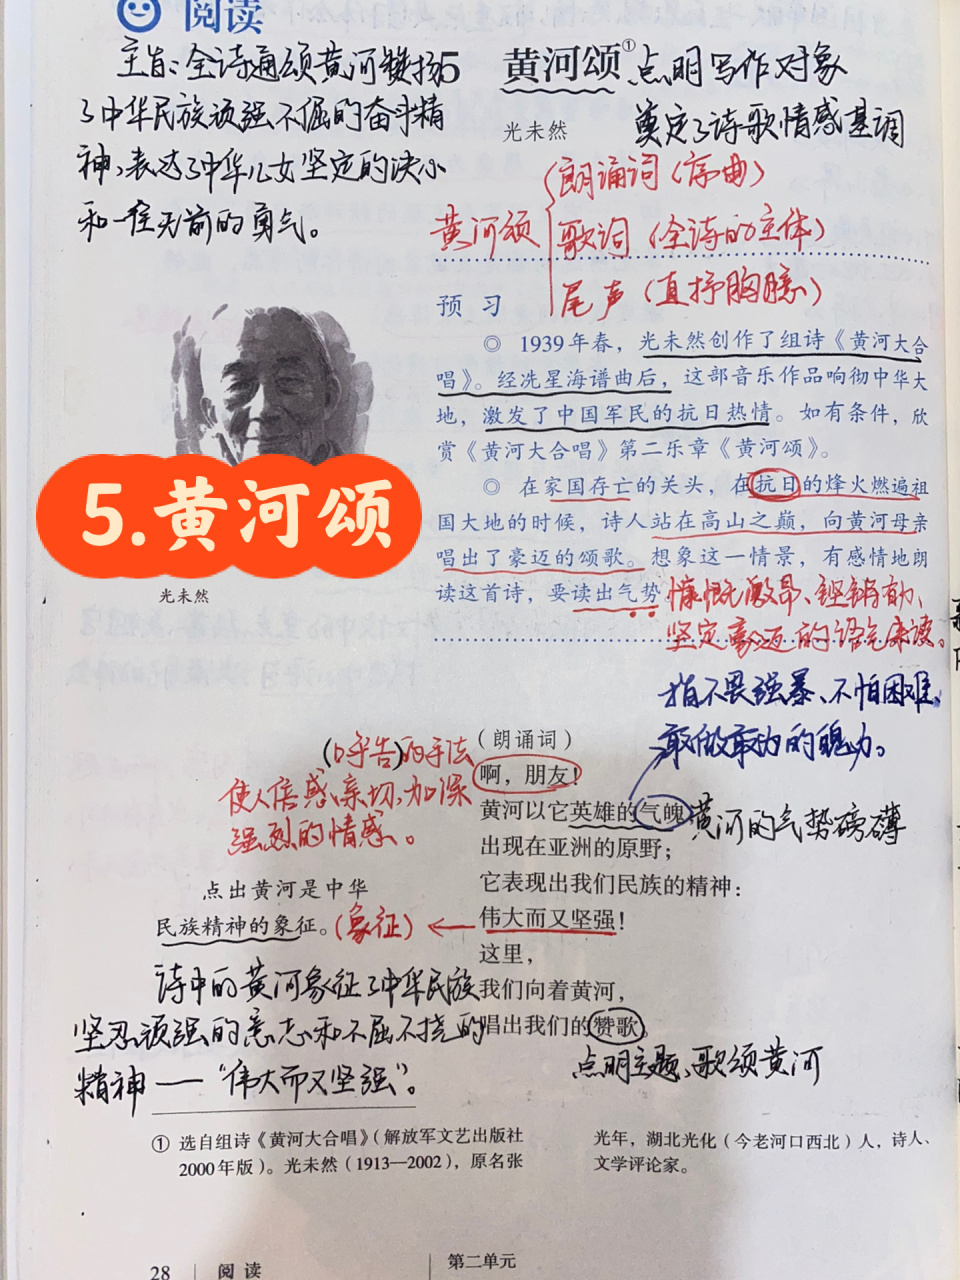 阅读
主旨:全诗通颂黄河赞扬
了中华民族顽强不屈的奋斗精
神,表达了中华儿女坚定的决心
和一往无前的勇气。
5 黄河颂①
点明写作对象
奠定了诗歌情感基调
光未然
黄河颂
朗诵词(序曲)
歌词(全诗的主体)
尾声(直抒胸臆)
预习
◎ 1939年春,光未然创作了组诗《黄河大合
唱》。经冼星海谱曲后,这部音乐作品响彻中华大
地,激发了中国军民的抗日热情。如有条件,欣
赏《黄河大合唱》第二乐章《黄河颂》。
◎ 在家国存亡的关头,在抗日的烽火燃遍祖
国大地的时候,诗人站在高山之巅,向黄河母亲
唱出了豪迈的颂歌。想象这一情景,有感情地朗
读这首诗,要读出气势
慷慨激昂、铿锵有力、
坚定豪迈的语气来读。
5.黄河颂
光未然
指不畏强暴、不怕困难、
敢做敢为的魄力。
(呼告)的手法
使人倍感亲切,加深
强烈的情感。
(朗诵词)
啊,朋友!
黄河以它英雄的气魄,
黄河的气势磅礴
出现在亚洲的原野;
它表现出我们民族的精神:
伟大而又坚强!
这里,
我们向着黄河,
唱出我们的赞歌
点明主题、歌颂黄河
点出黄河是中华
民族精神的象征。(象征)
诗中的黄河象征了中华民族
坚忍顽强的意志和不屈不挠的
精神——“伟大而又坚强”。
① 选自组诗《黄河大合唱》(解放军文艺出版社
2000年版)。光未然(1913—2002),原名张
光年,湖北光化(今老河口西北)人,诗人、
文学评论家。
28 阅读
第二单元